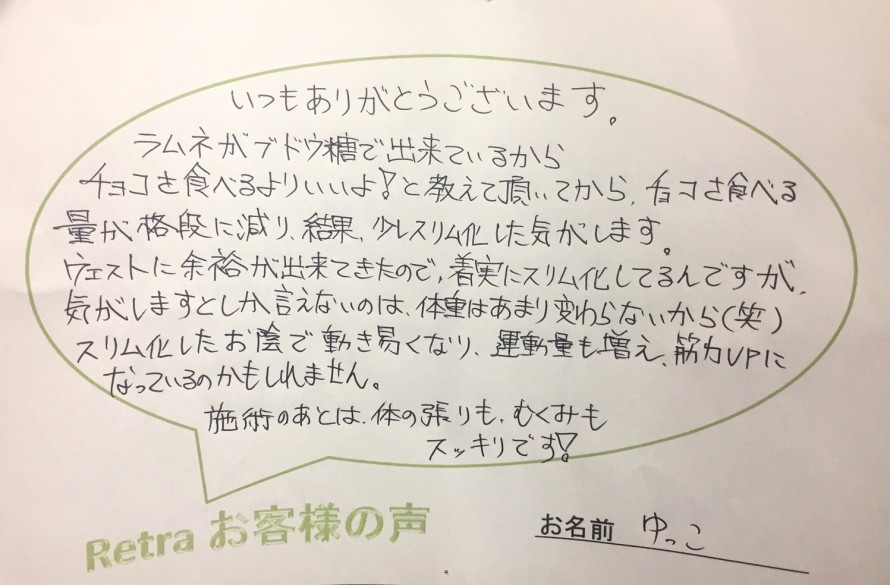 いつもありがとうございます。
ラムネがブドウ糖で出来ているから
チョコを食べるよりいいよ!と教えて頂いてから、チョコを食べる
量が格段に減り、結果、少しスリム化した気がします。
ウェストに余裕が出来てきたので、着実にスリム化してるんですが、
気がしますとしか言えないのは、体重はあまり変わらないから(笑)
スリム化したお陰で動き易くなり、運動量も増え、筋力UPに
なっているのかもしれません。
施術のあとは、体の張りも、むくみも
スッキリです!
Retra お客様の声
お名前 ゆっこ